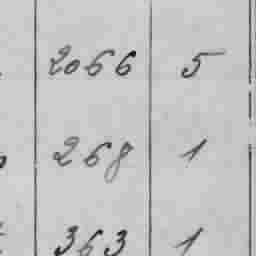 2066 5
268 1
363 1